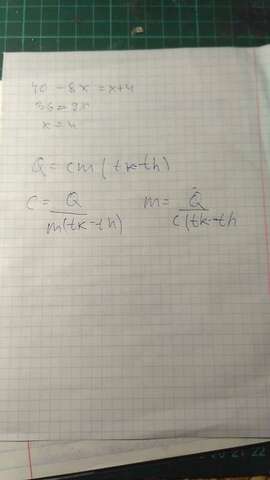 40 - 8x = x+4
36 = 9x
x = 4
Q = cm(tk-th)
c = Q / m(tk-th) m = Q / c(tk-th
20 21 22